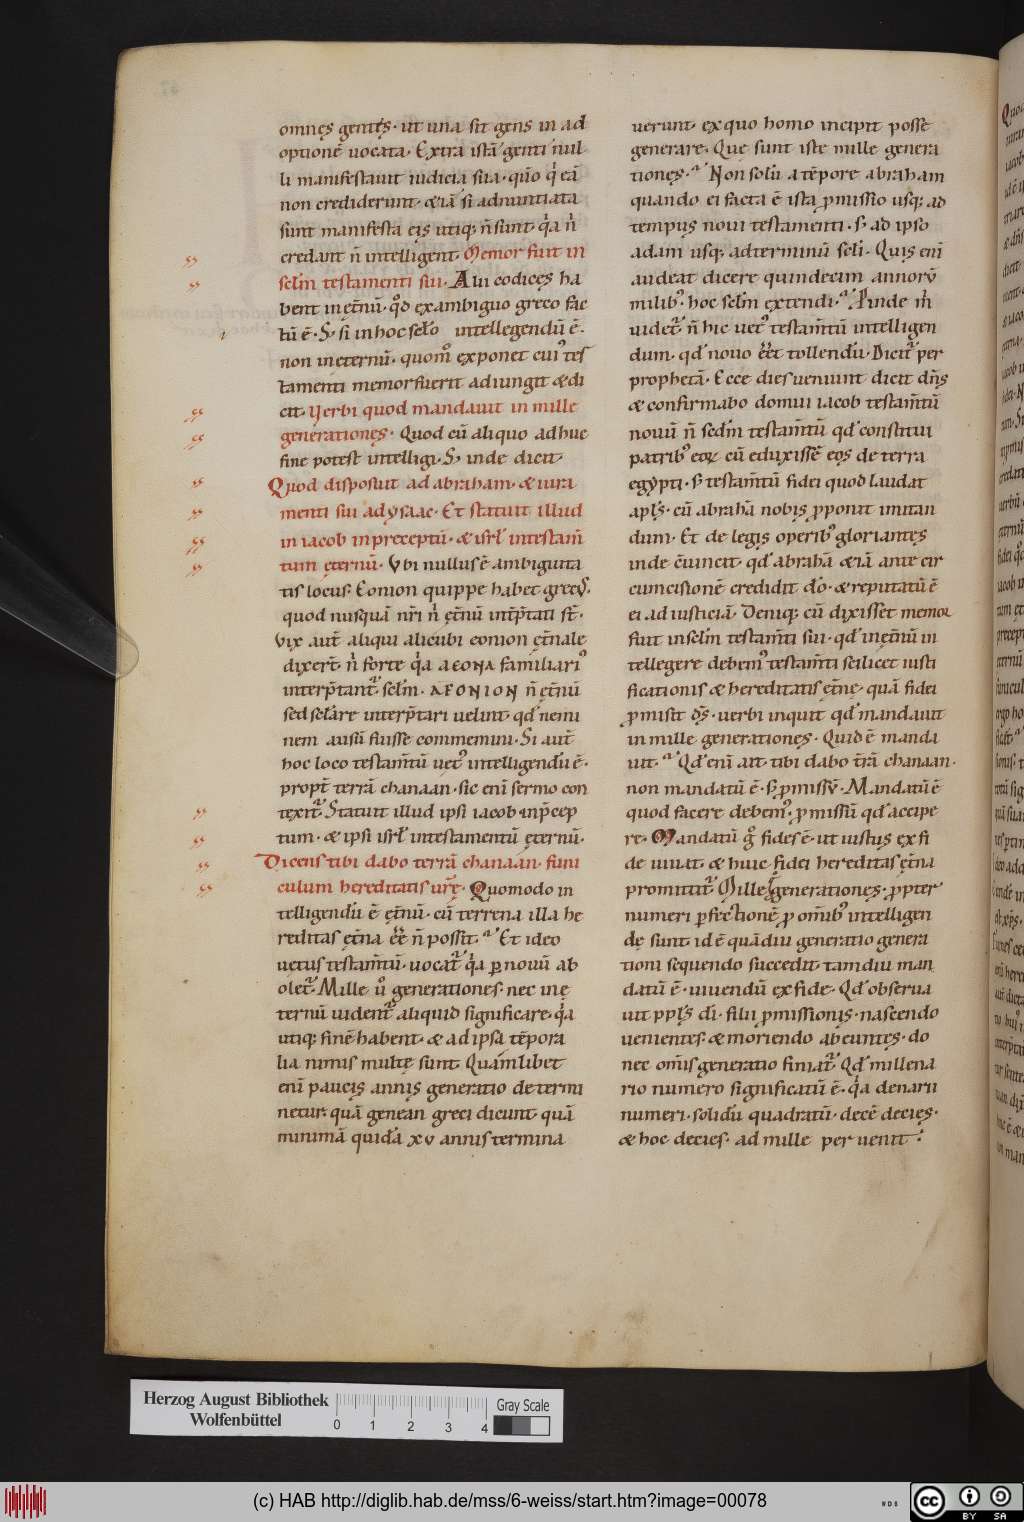 omnęs gentęs· ut una sit gens in ad
optionē uocata· Extra istā genti nul
li manifestauit iudicia sua· qūo q̇ eā
non crediderunt· &iā si adnuntiata
sunt manifesta eis utiq; ñ sunt· q̇a ṅ
credant ñ intelligent· Memor fuit in
sclm testamenti sui· Alii codicęs ha
bent in ęt̄nū· q̇d ex ambiguo greco fac
tū ē· S; si in hoc sclo intellegendū ē·
non in eternū· quom̄ exponet cui' tes
tamenti memor fuerit adiungit &di
cit· Verbi quod mandauit in mille
generationęs· Quod cū aliquo adhuc
fine potest intelligi· S; inde dicit·
Quod disposuit ad abraham· & iura
menti sui ad ysaac· Et statuit illud
in iacob in preceptū· & isrl' in testam̄
tum ęternū· Vbi nullus ē ambiguita
tis locus· Eonion quippe habet grec9·
quod nusquā nr̄i ṅ ęt̄nū int̄p̄tati st̄·
Vix aut̄ aliqui alicubi eonion ęt̄nale
dixer̄t· ṅ forte q̇a aEONA familiari'
interp̄tant᷑ sclm· AEONION ñ ęt̄nū
sed sclare interp̄tari uelint· qd' nemi
nem ausū fuisse commemini· Si aut̄
hoc loco testam̄tū uet' intelligendū ē·
propt̄ terrā chanaan· sic enī sermo con
texit᷑· Statuit illud ipsi iacob in p̄cep
tum· & ipsi isrl' in testamentū ęternū·
Dicens tibi dabo terrā chanaan· funi
culum hereditatis ur̄ę· Quomodo in
telligendū ē ęt̄nū· cū terrena illa he
reditas ęt̄na ee᷑ ñ possit· Et ideo
uetus testam̄tū uocat᷑ q̇a p nouū ab
olet᷑· Mille u̇ generationęs· nec in ę
ternū uident᷑ aliquid significare· q̇a
utiq; finē habent· & ad ipsa tēpora
lia nimis multę sunt· Quāmlibet
enī paucis annis generatio de termi
netur· quā genean greci dicunt· quā
minimā quidā xv annis termina
uerunt· ex quo homo incipit posse
generare· Quę sunt iste mille genera
tionęs· Non solū a tēpore abraham
quando ei facta ē ista pmissio usq; ad
tempus noui testamenti· s; ad ipso
adam usq; ad terminū scli· Quis enī
audeat dicere quindecim annorū
milib' hoc sclm extendi· Vnde m̊
uidet᷑ ñ hic uet' testam̄tū intelligen
dum· qd' nouo ee᷑t tollendū· Dicit᷑ per
prophetā· Ecce dies ueniunt dicit dn̄s
& confirmabo domui iacob testam̄tū
nouū ñ scdm testam̄tū qd' constitui
patrib' eoꝝ cū eduxissē eos de terra
egypti· s; testam̄tū fidei quod laudat
apls· cū abrahā nobis pponit imitan
dum· Et de legis operib' gloriantęs
inde c̄uincit· qd' abrahā &iā ante cir
cumcisionē credidit do· & reputatū ē
ei ad iusticiā· Deniq; cū dixisset memor
fuit in sclm testam̄ti sui· qd' in ęt̄nū in
tellegere debem' testam̄ti scilicet iusti
ficationis & hereditatis ęt̄nę· quā fidei
pmisit ds̄· uerbi inquit qd' mandauit
in mille generationęs· Quid ē manda
uit· Qd' enī ait· tibi dabo t̄rā chanaan·
non mandatū ē· s; pmissū· Mandatū ē
quod facere debem'· pmissū qd' accipe
re· Mandatū g̊ fides ē· ut iustus ex fi
de uiuat· & huic fidei hereditas ęt̄na
promittit᷑· Mille generationęs· ppter
numeri pfectionē p omīb' intelligen
dę sunt· id ē quādiu generatio genera
tioni sequendo succedit· tam diu man
datū ē· uiuendū ex fide· Qd' obserua
uit ppls di· filii pmissionis· nascendo
uenientes· & moriendo abeuntęs· do
nec om̄is generatio finiat᷑· Qd' millena
rio numero significatū ē· q̇a denarii
numeri· solidū quadratū· decē decies·
& hoc decies· ad mille per uenit·
Herzog August Bibliothek
Wolfenbüttel
0 1 2 3 4
Gray Scale
(c) HAB http://diglib.hab.de/mss/6-weiss/start.htm?image=00078
cc BY SA